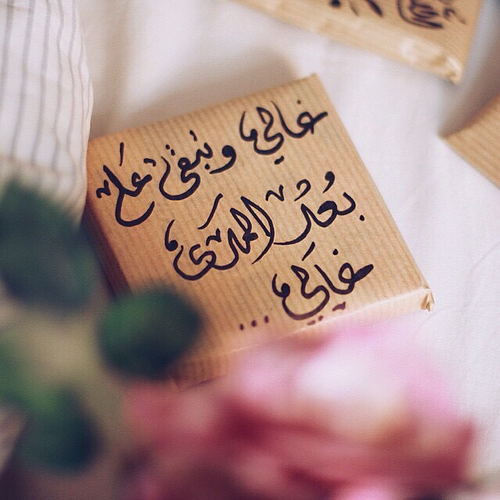 غالي وتبقى على
بُعد المدى
غالي ...